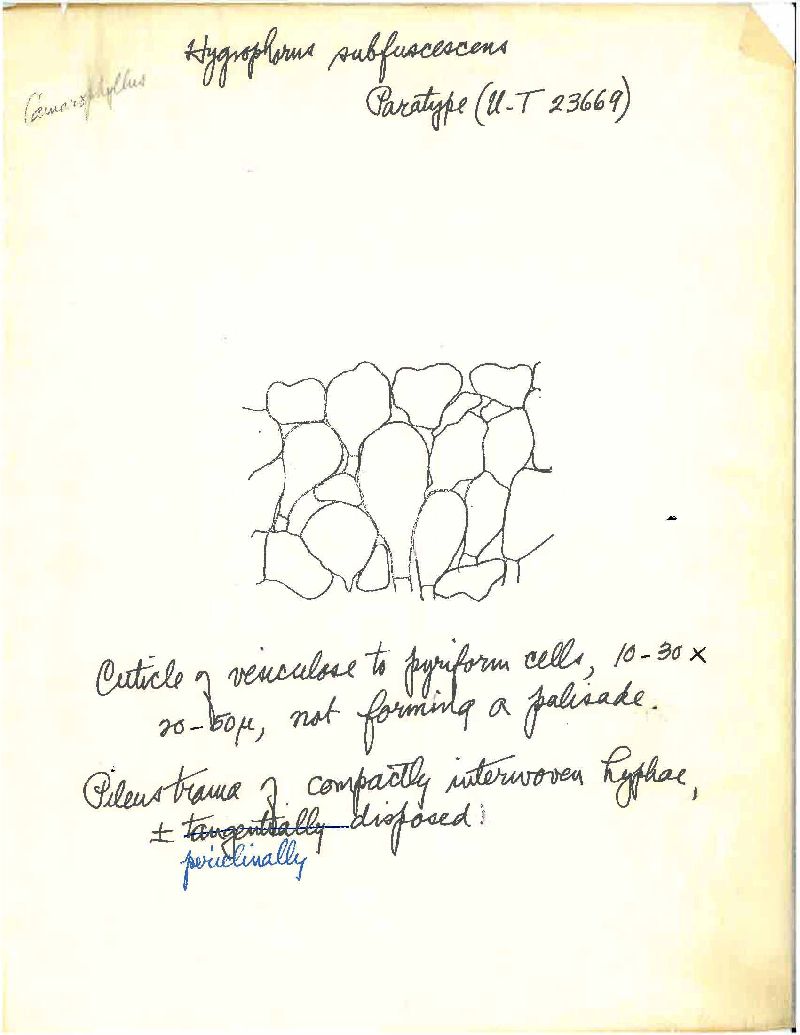 Hygrophorus subfuscescens
Camarophyllus
Paratype (U-T 23669)
Cuticle of vesiculose to pyriform cells, 10-30 ×
20-50µ, not forming a palisade.
Pileus trama of compactly interwoven hyphae,
± tangentially disposed.
periclinally